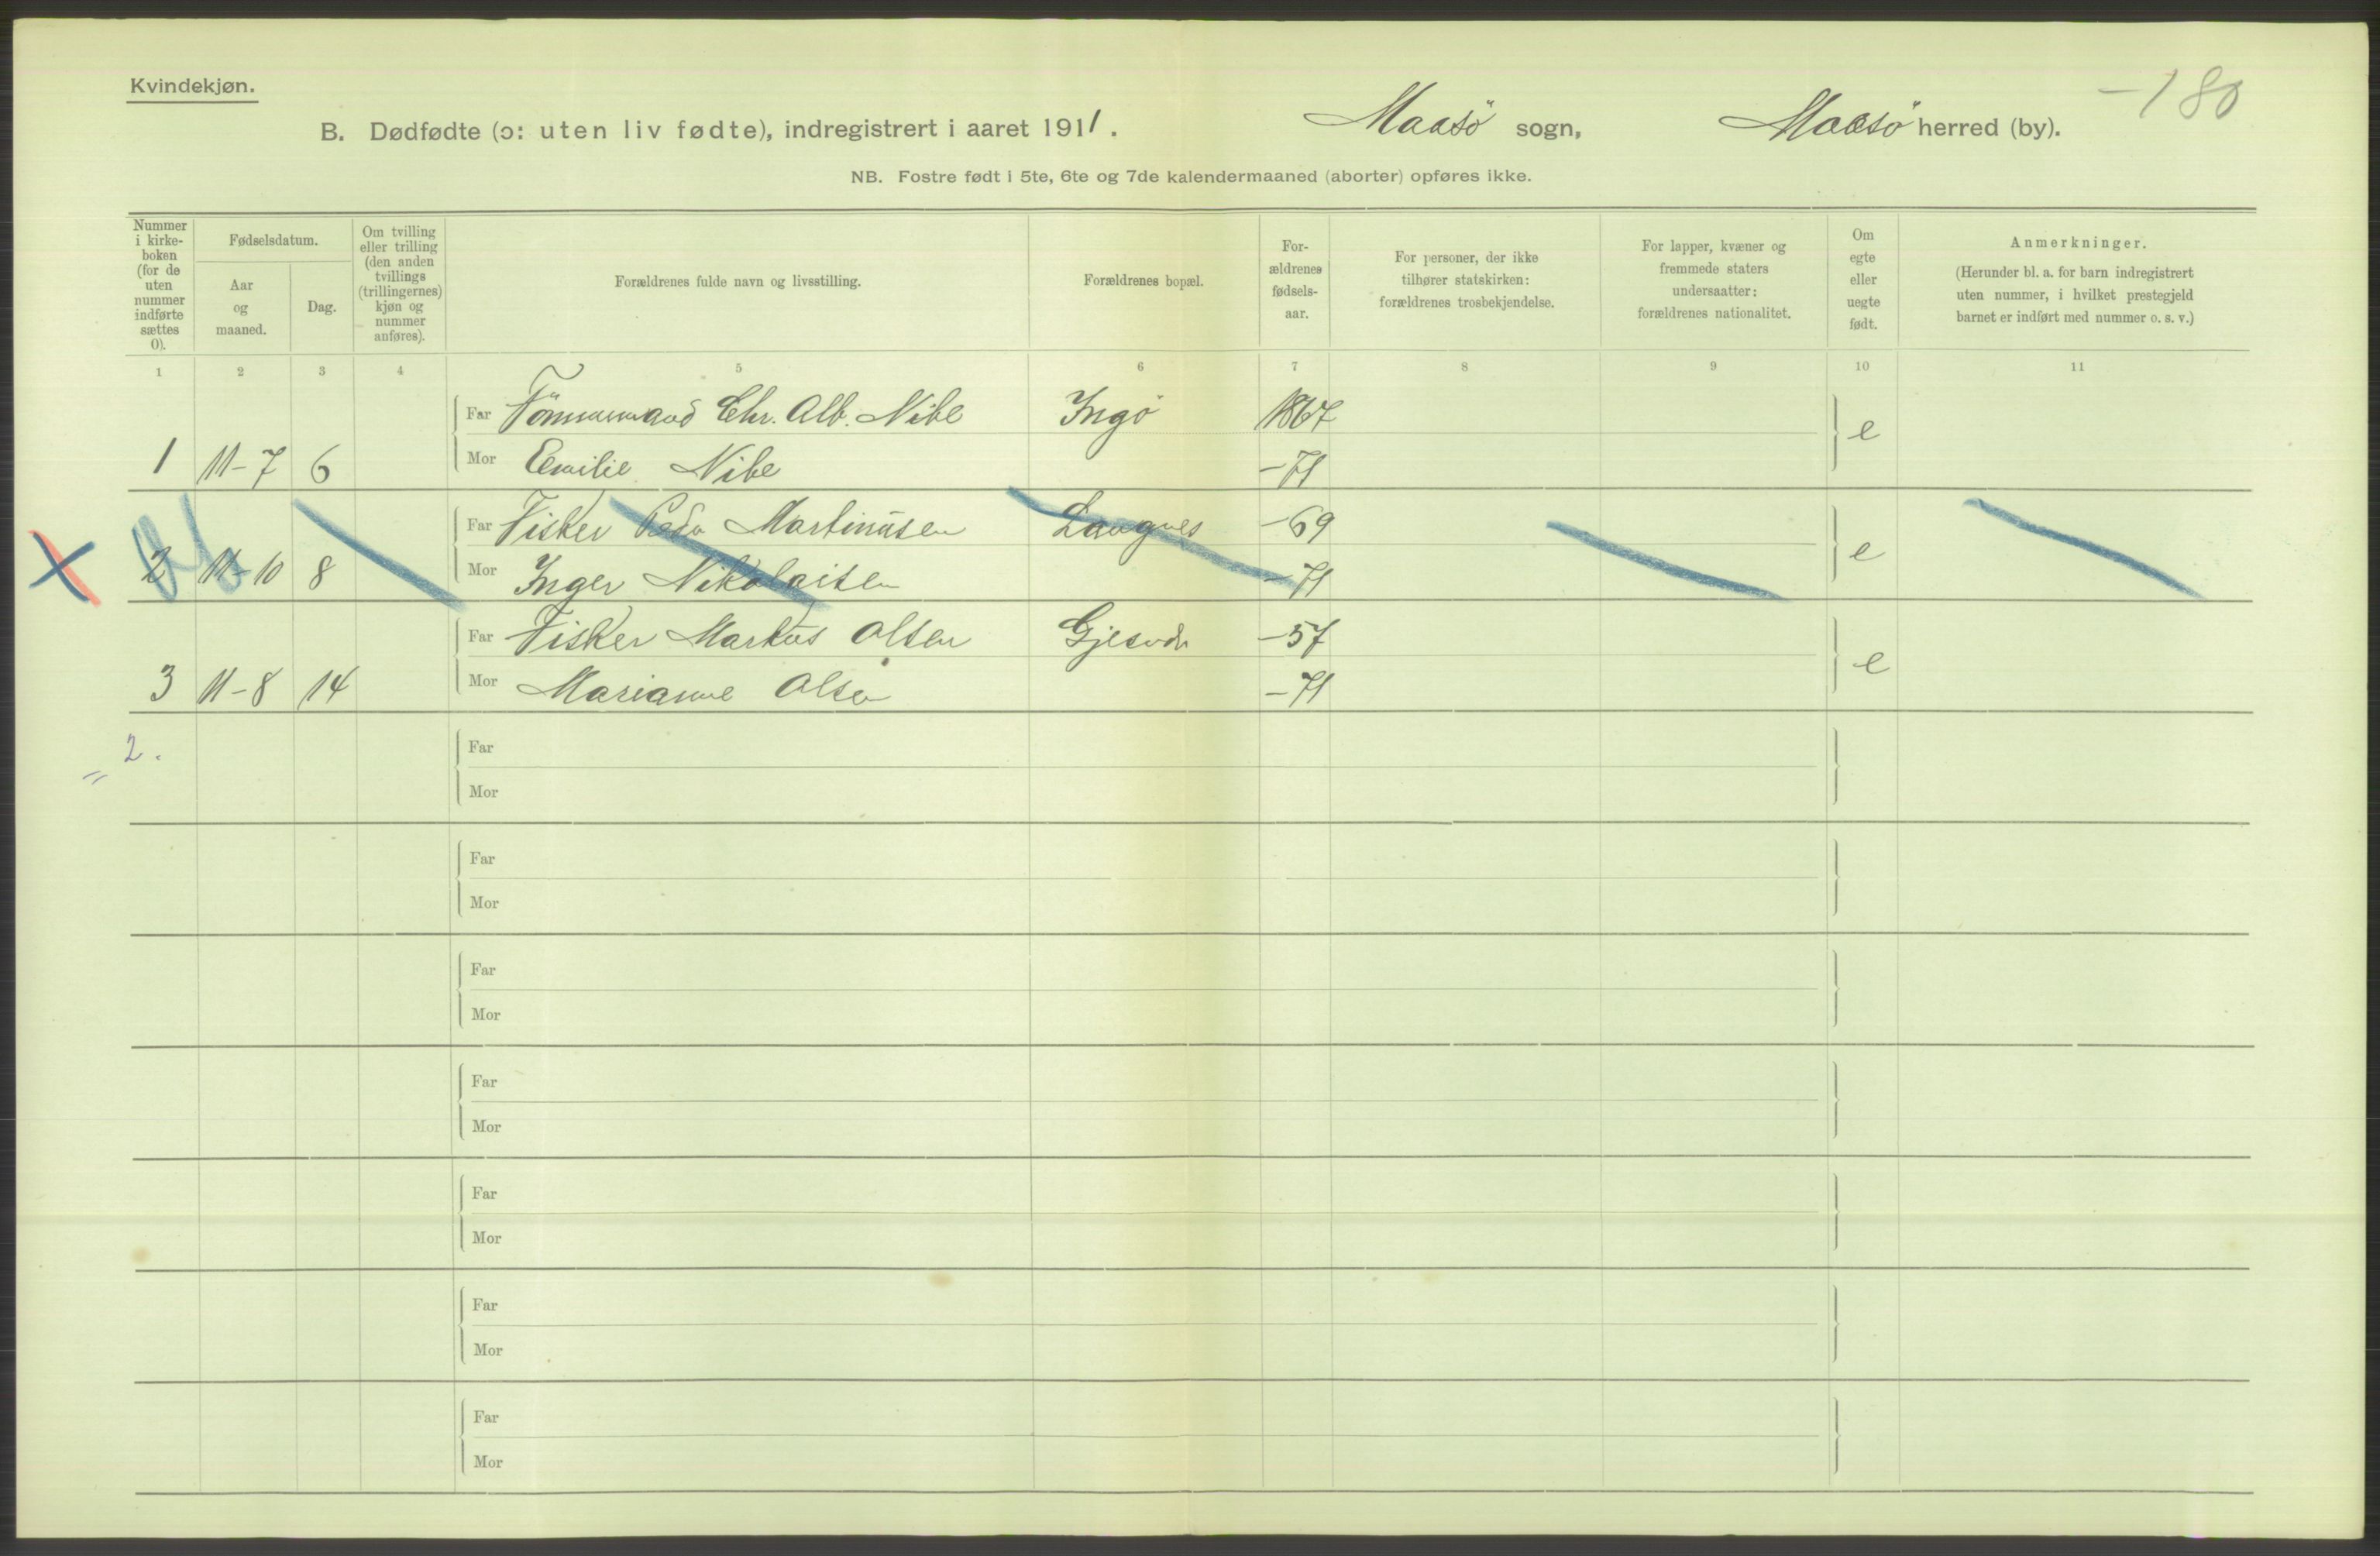 Kvindekjøn.
-180
B. Dødfødte (ɔ: uten liv fødte), indregistrert i aaret 1911. Maasö sogn, Maasö herred (by).
NB. Fostre født i 5te, 6te og 7de kalendermaaned (aborter) opføres ikke.
Nummer i kirke-boken (for de uten nummer indførte sættes 0).
Fødselsdatum.
Aar og maaned.
Dag.
Om tvilling eller trilling (den anden tvillings (trillingernes) kjøn og nummer anføres).
Forældrenes fulde navn og livsstilling.
Forældrenes bopæl.
For-ældrenes fødsels-aar.
For personer, der ikke tilhører statskirken: forældrenes trosbekjendelse.
For lapper, kvæner og fremmede staters undersaatter: forældrenes nationalitet.
Om egte eller uegte født.
Anmerkninger.
(Herunder bl. a. for barn indregistrert uten nummer, i hvilket prestegjeld barnet er indført med nummer o. s. v.)
1 2 3 4 5 6 7 8 9 10 11
Far Tömmermand Chr. Alb. Nibe Ingö 1867
1 11-7 6 Mor Emilie Nibe -71 e
Far Fisker Martinusen Langnes -69
2 11-10 8 Mor Inger Nikolaisen -71 e
Far Fisker Markus Olsen -57
3 11-8 14 Mor Marianne Olsen -71 e
= 2.
Far
Mor
Far
Mor
Far
Mor
Far
Mor
Far
Mor
Far
Mor
Far
Mor